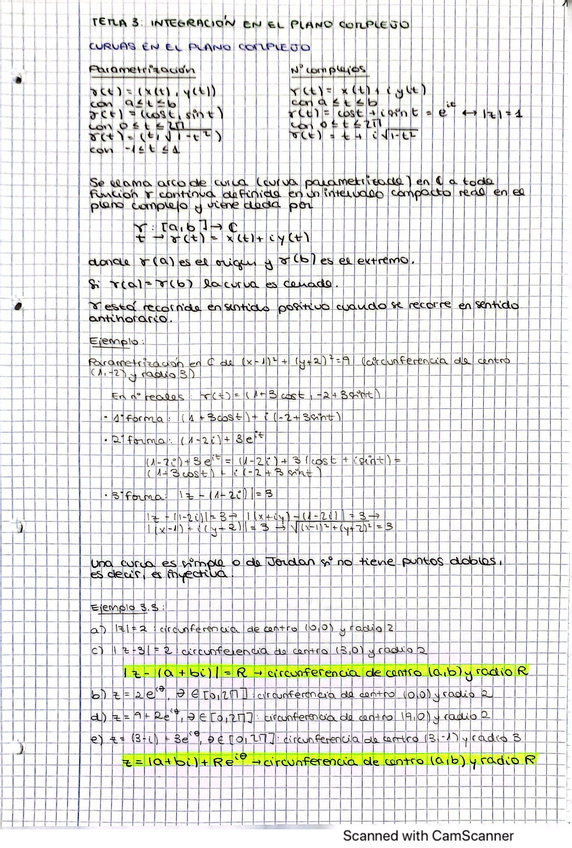 TEMA 3: INTEGRACIÓN EN EL PLANO COMPLEJO
CURVAS EN EL PLANO COMPLEJO
Parametrización
r(t) = (x(t), y(t))
con a≤t≤b
r(t) = (cost, sint)
con 0≤t≤2π
r(t) = (t, √1-t²)
con -1≤t≤1
Nº complejos
r(t) = x(t) + i y(t)
con a≤t≤b
r(t) = cost + i sint = e^it ↔ |z| = 1
con 0≤t≤2π
r(t) = t + i √1-t²
Se llama arco de curva (curva parametrizada) en ℂ a toda
función r continua definida en un intervalo compacto real en el
plano complejo y viene dada por
r : [a,b] → ℂ
t → r(t) = x(t) + i y(t)
donde r(a) es el origen y r(b) es el extremo.
Si r(a) = r(b) la curva es cerrado.
r está recorrida en sentido positivo cuando se recorre en sentido
antihorario.
Ejemplo:
Parametrización en ℂ de (x-1)² + (y+2)² = 9 (circunferencia de centro
(1,-2) y radio 3)
En nº reales r(t) = (1+3cost, -2+3sint)
· 1ª forma: (1+3cost) + i(-2+3sint)
· 2ª forma: (1-2i) + 3e^it
(1-2i) + 3e^it = (1-2i) + 3(cost + isint) =
(1+3cost) + i(-2+3sint)
· 3ª forma: |z - (1-2i)| = 3
|z - (1-2i)| = 3 → |(x+iy) - (1-2i)| = 3 →
|(x-1) + i(y+2)| = 3 → √(x-1)² + (y+2)² = 3
Una curva es simple o de Jordan si no tiene puntos dobles,
es decir, es inyectiva
Ejemplo 3.5:
a) |z| = 2 : circunferencia de centro (0,0) y radio 2
c) |z-3| = 2 circunferencia de centro (3,0) y radio 2
|z - (a+bi)| = R → circunferencia de centro (a,b) y radio R
b) z = 2e^iθ, θ ∈ [0,2π] : circunferencia de centro (0,0) y radio 2
d) z = 9 + 2e^iθ, θ ∈ [0,2π] : circunferencia de centro (9,0) y radio 2
e) z = (3-i) + 3e^iθ, θ ∈ [0,2π] : circunferencia de centro (3,-1) y radio 3
z = (a+bi) + Re^iθ → circunferencia de centro (a,b) y radio R
Scanned with CamScanner